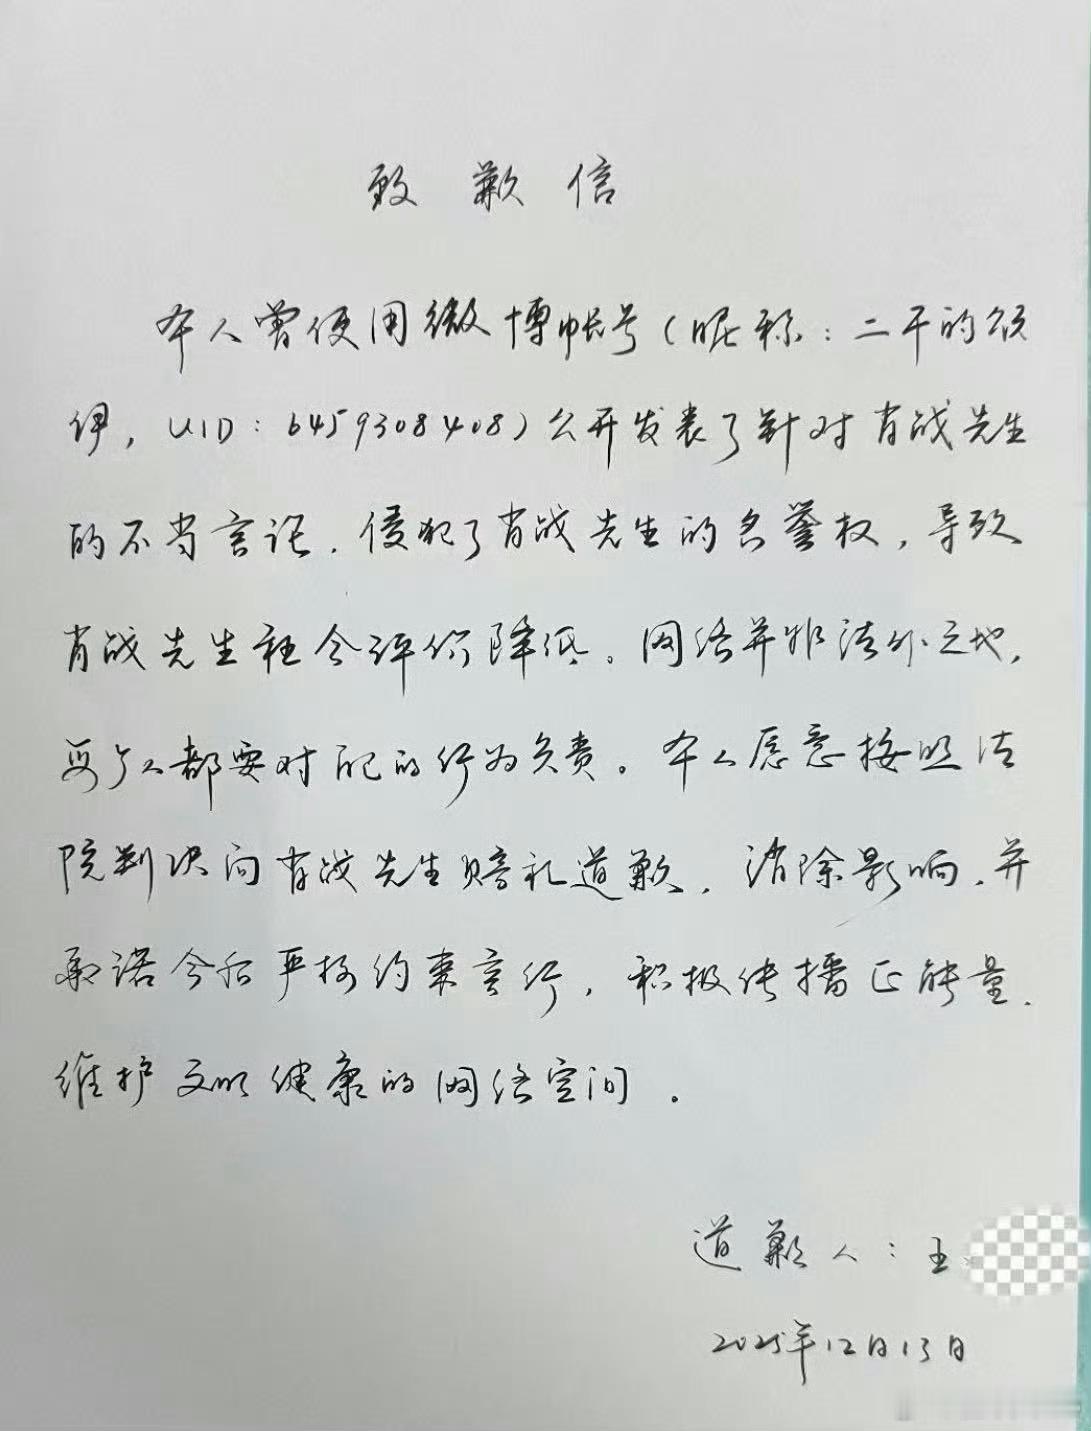 致歉信
本人曾使用微博帐号（昵称：二千的颂
伊，UID：6459308408）公开发表了针对肖战先生
的不当言论，侵犯了肖战先生的名誉权，导致
肖战先生社会评价降低。网络并非法外之地，
每个人都要对自己的行为负责。本人愿意按照法
院判决向肖战先生赔礼道歉，消除影响，并
承诺今后严格约束言行，积极传播正能量，
维护文明健康的网络空间。
道歉人：王
2025年12月13日